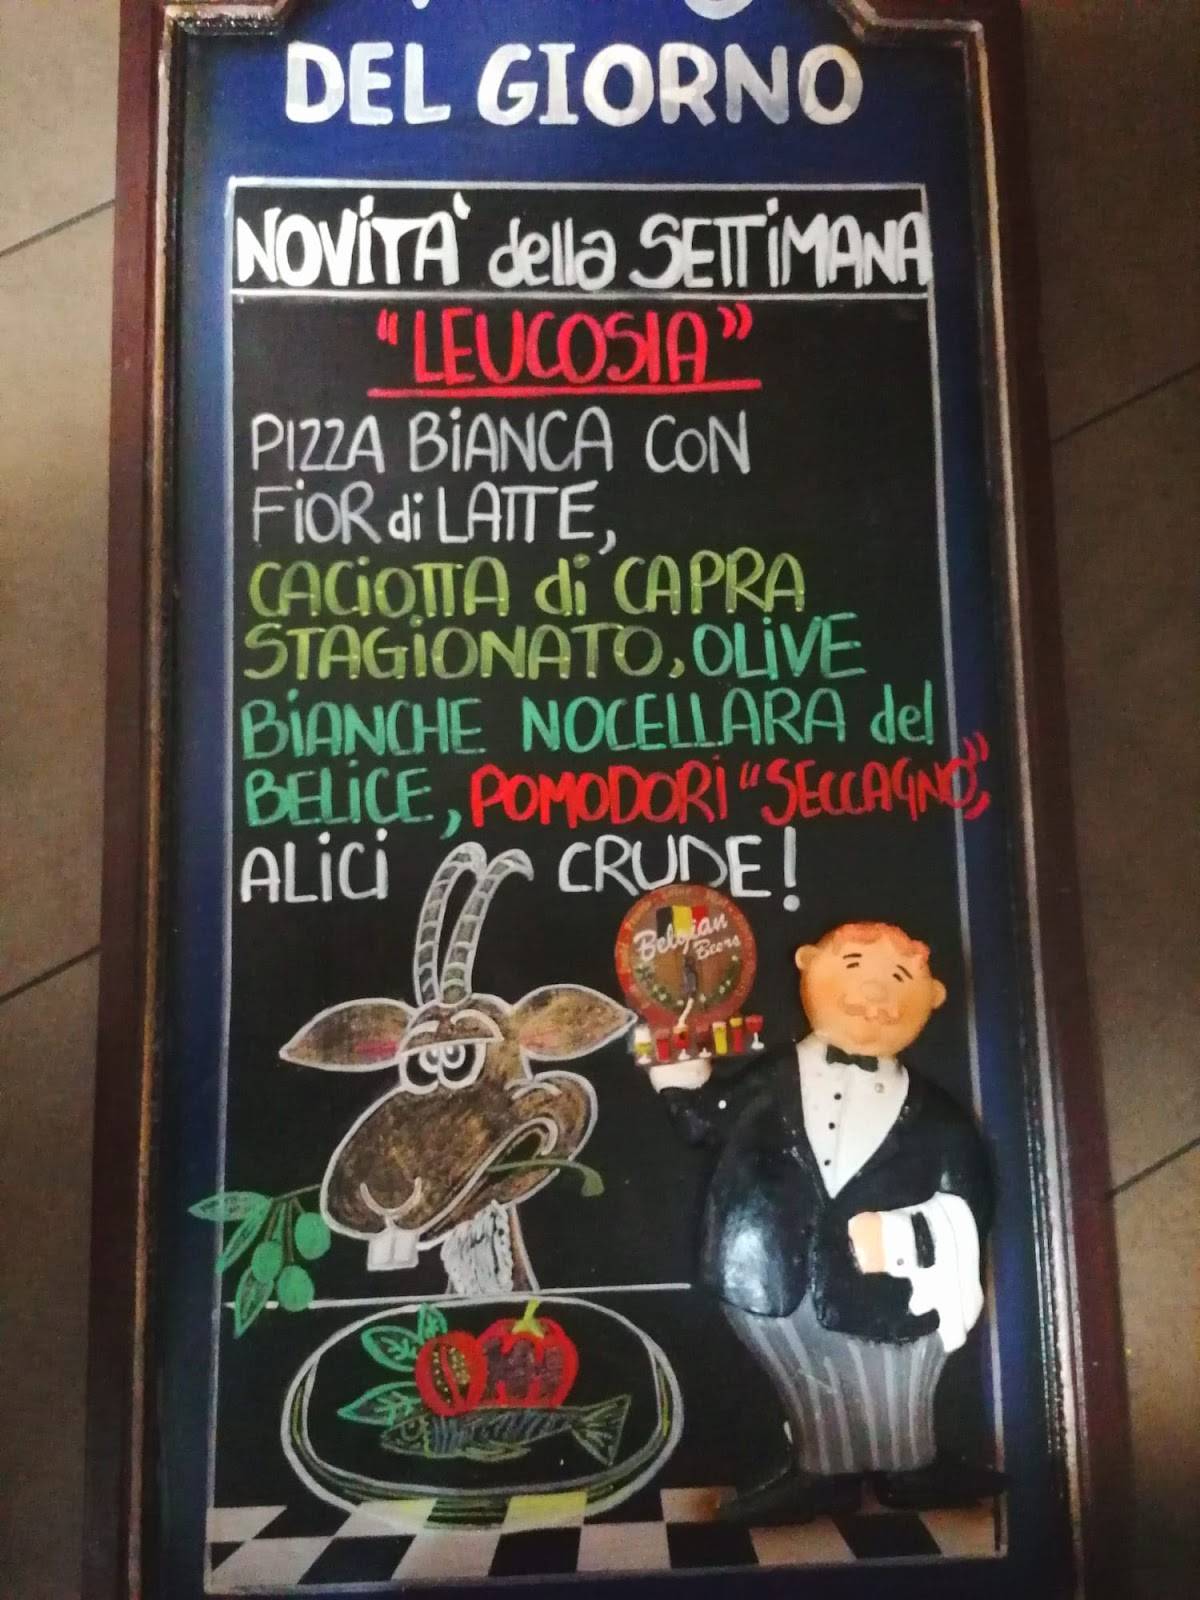 DEL GIORNO
NOVITA' della SETTIMANA
"LEUCOSIA"
PIZZA BIANCA CON
FIOR di LATTE,
CACIOTTA di CAPRA
STAGIONATO, OLIVE
BIANCHE NOCELLARA del
BELICE, POMODORI "SECCAGNO",
ALICI CRUDE!
Belgian
Beers